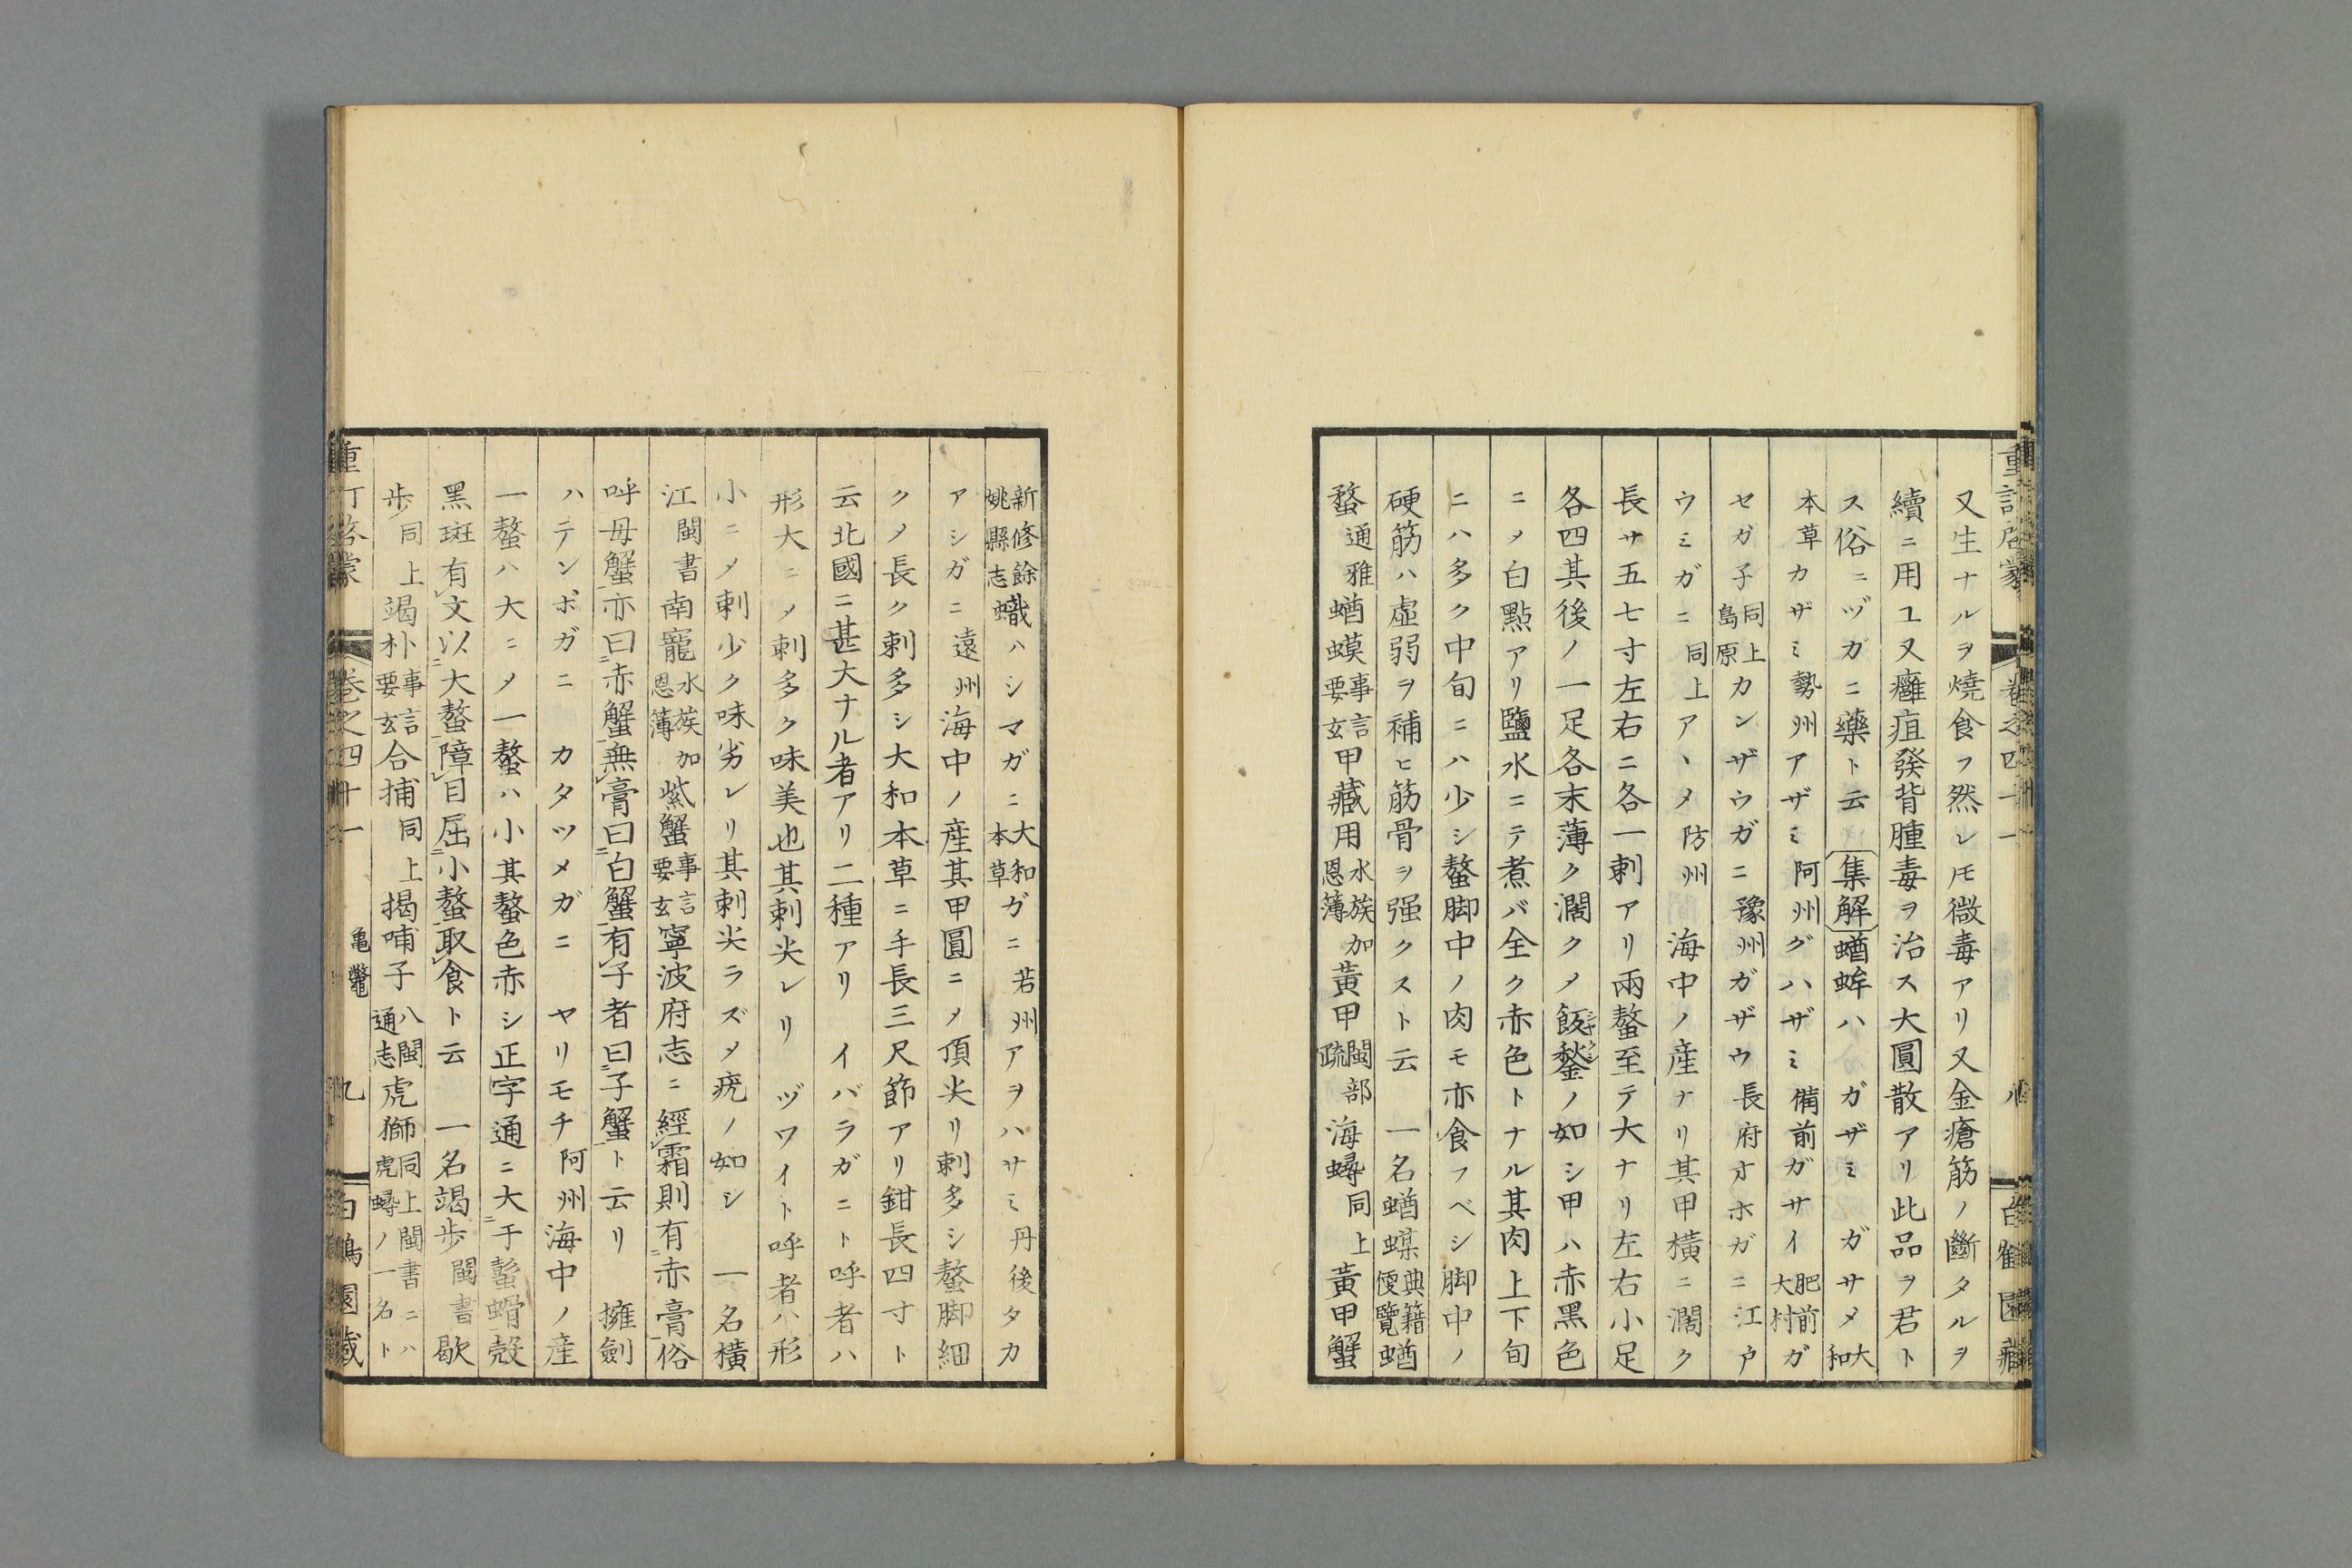 重訂啓蒙 卷之四十一 八 白鶴園藏
又生ナルヲ燒食フ然レ𪜈微毒アリ又金瘡筋ノ斷タルヲ
續ニ用ユ又癰疽發背腫毒ヲ治ス大圓散アリ此品ヲ君ト
ス俗ニヅガニ藥ト云 集解 蝤蛑ハ ガザミ ガサメ大和
本草カザミ勢州アザミ阿州グハザミ備前ガサイ肥前大村ガ
セガ子同上島原カンザウガニ豫州ガザウ長府オホガニ江戸
ウミガニ同上アヽメ防州 海中ノ産ナリ其甲橫ニ濶ク
長サ五七寸左右ニ各一刺アリ兩螯至テ大ナリ左右小足
各四其後ノ一足各末薄ク濶クメ飯鍫ノ如シ甲ハ赤黑色
ニメ白點アリ鹽水ニテ煮バ全ク赤色トナル其肉上下旬
ニハ多ク中旬ニハ少シ螯脚中ノ肉モ亦食フベシ脚中ノ
硬筋ハ虛弱ヲ補ヒ筋骨ヲ强クスト云 一名蝤蟝典籍便覽蝤
蝥通雅蝤蟆事言要玄甲藏用水族加恩簿黃甲閩部疏海蟳同上黃甲蟹
新修餘姚縣志蠘ハシマガニ大和本草ガニ若州アヲハサミ丹後タカ
アシガニ遠州海中ノ産其甲圓ニメ頂尖リ刺多シ螯脚細
クメ長ク刺多シ大和本草ニ手長三尺節アリ鉗長四寸ト
云北國ニ甚大ナル者アリ二種アリ イバラガニト呼者ハ
形大ニメ刺多ク味美也其刺尖レリ ヅワイト呼者ハ形
小ニメ刺少ク味劣レリ其刺尖ラズメ疣ノ如シ 一名橫
江閩書南寵水族加恩簿紫蟹事言要玄寧波府志ニ經霜則有赤膏俗
呼母蟹亦曰赤蟹無膏曰白蟹有子者曰子蟹ト云リ 擁劍
ハテンボガニ カタツメガニ ヤリモチ阿州海中ノ産
一螯ハ大ニメ一螯ハ小其螯色赤シ正字通ニ大于蟚蜎殼
黑斑有文以大螯障目屈小螯取食ト云 一名竭步閩書歇
步同上竭朴事言要玄合捕同上揭哺子八閩通志虎獅同上閩書ニハ虎蟳ノ一名ト
重訂啓蒙 卷之四十一 亀鼈 九 白鶴園藏